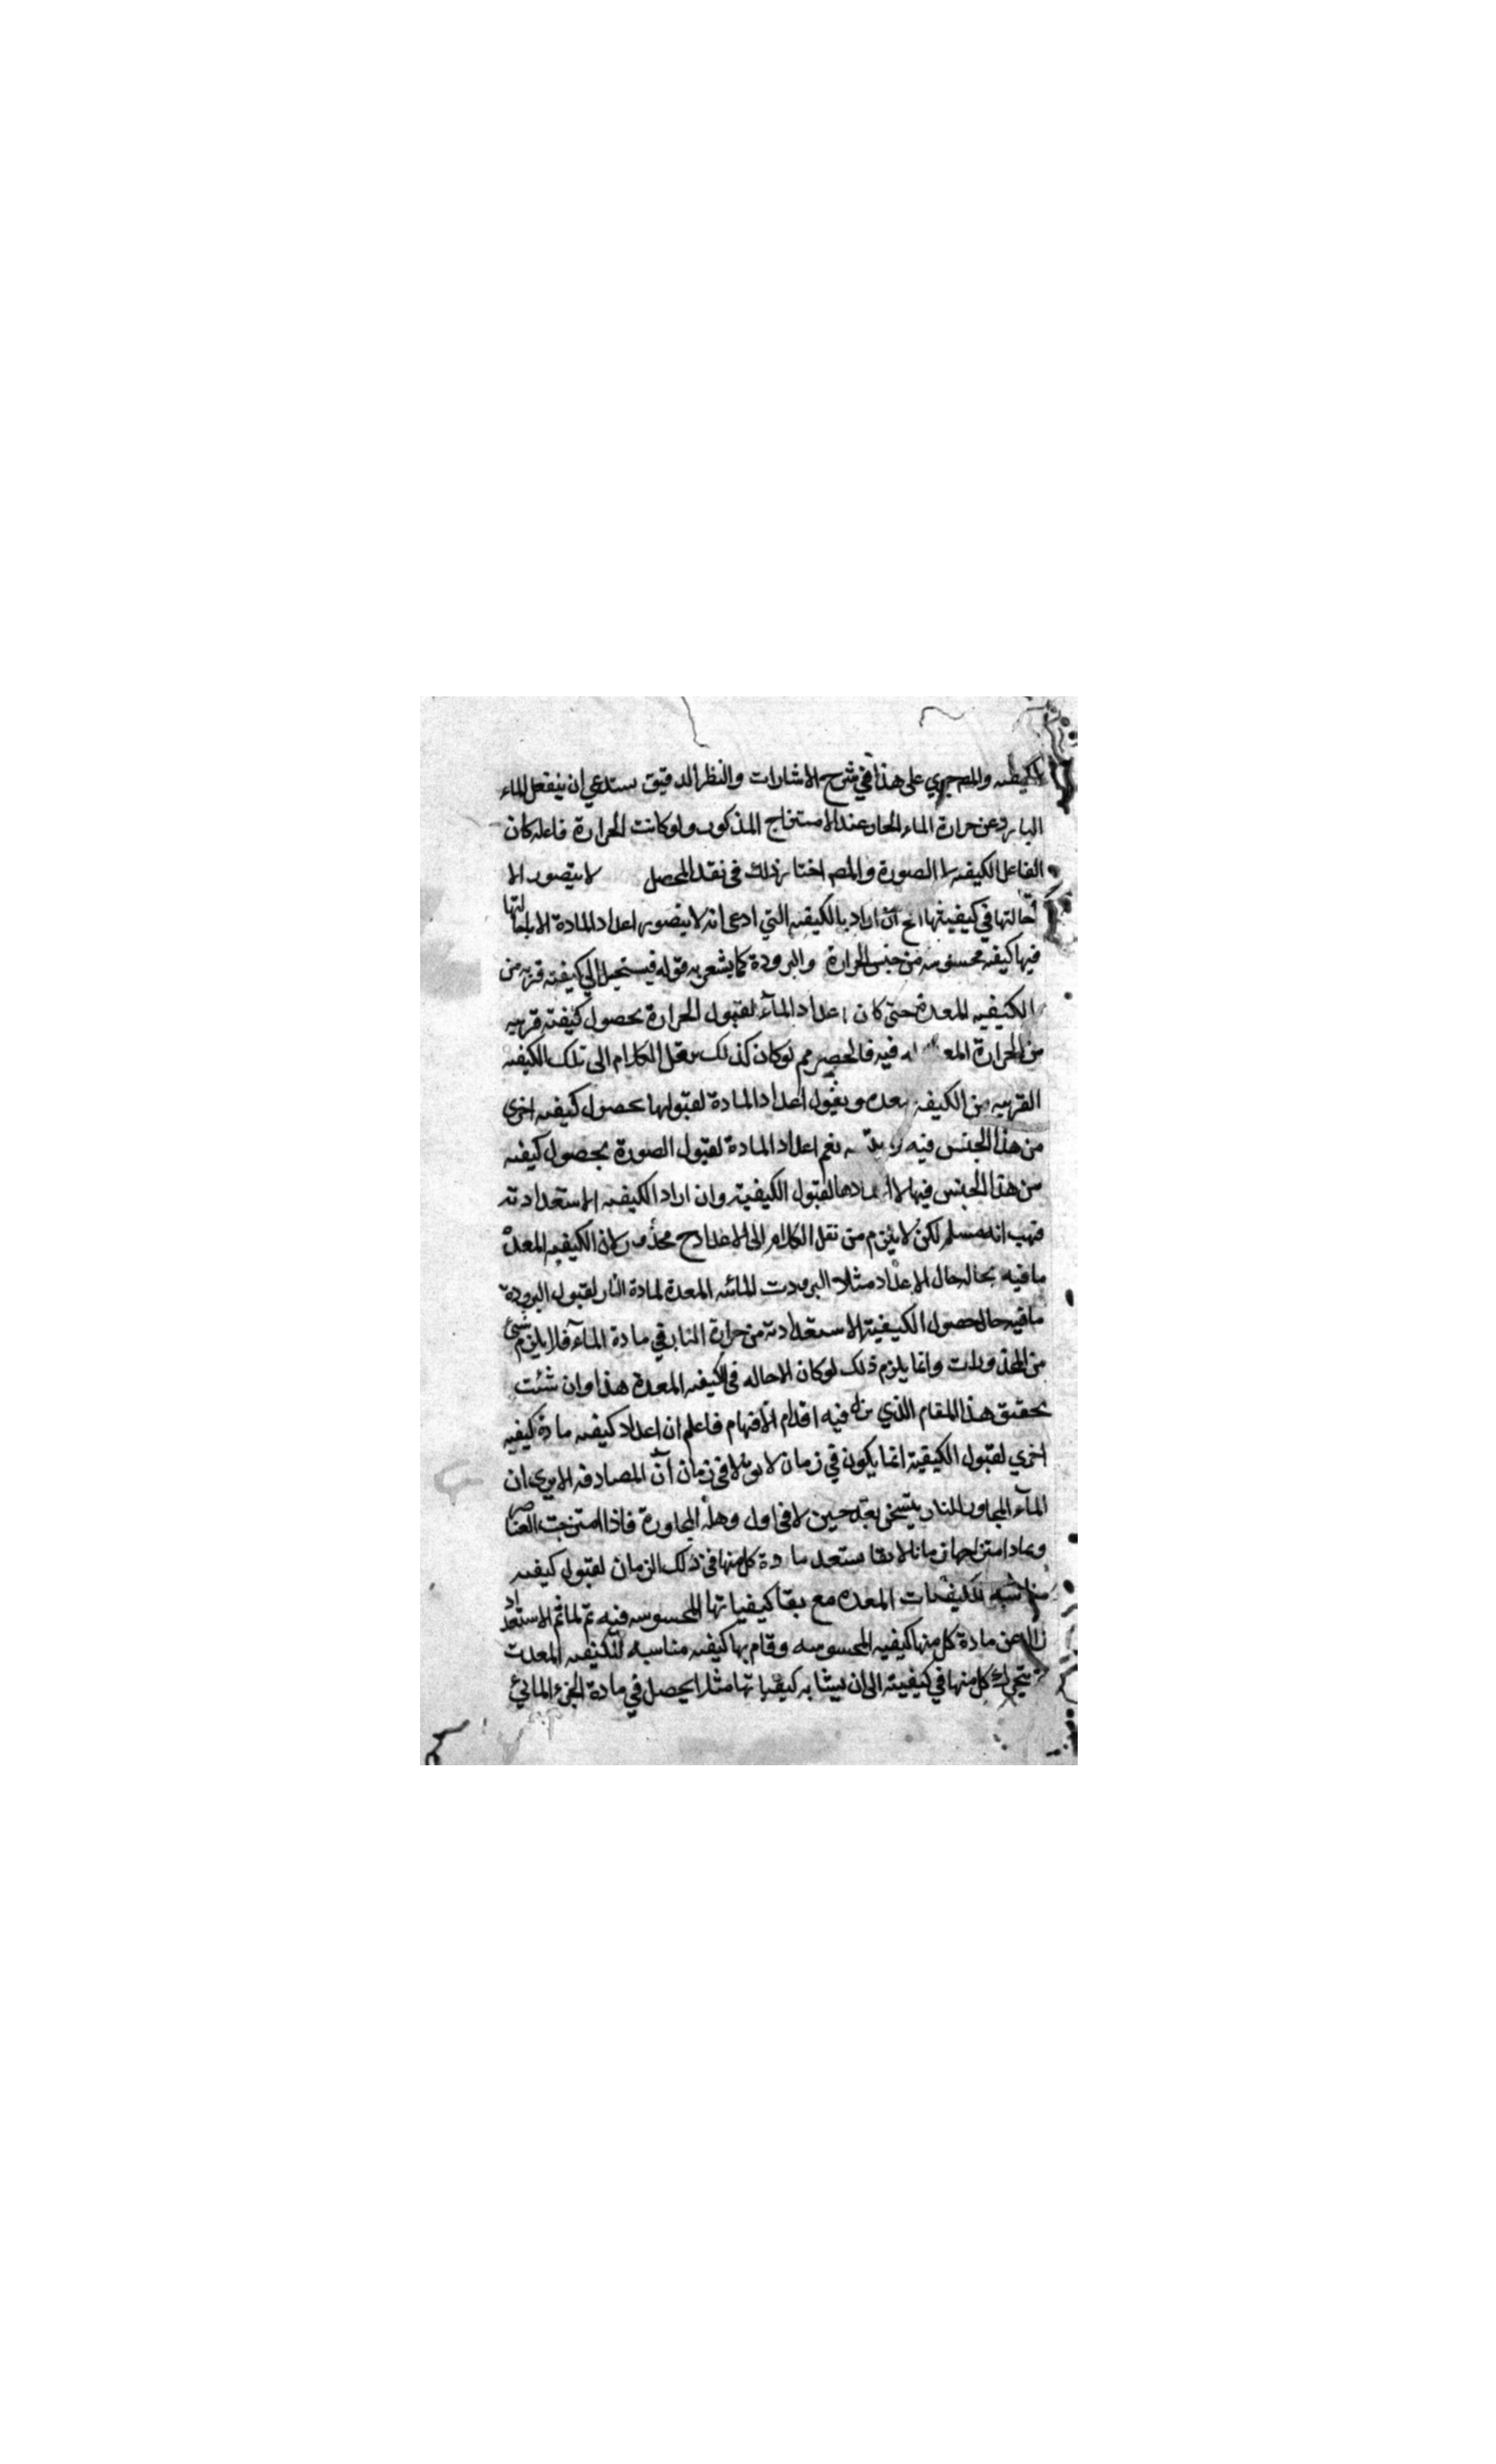 بالكيفيه والمص جري على هذا في شرح الاشارات والنظر الدقيق يستدعي ان ينفعل الماء
البارد عن حرارة الماء الحار عند الامتزاج المذكور ولو كانت الحرارة فاعله كان
الفاعل الكيفيه لا الصورة والمص اختار ذلك في نقد المحصل لا يتصور الا
احالتها في كيفيتها الخ ان اراد بالكيفيه التي ادعى انه لا يتصور اعداد المادة الا باحالتها
فيها كيفيه محسوسه من جنس الحرارة والبرودة كما يشعر به قوله فيستحيل الي كيفية قريبه من
الكيفيه المعدة حتى كان اعداد المآء لقبول الحرارة بحصول كيفية قريبه
من الحرارة فيه فالحصر مم لو كان كذلك ننقل الكلام الى تلك الكيفيه
القريبه من الكيفيه المعده ونقول اعداد المادة لقبولها بحصول كيفيه اخرى
من هذا الجنس فيه نعم اعداد المادة لقبول الصورة بحصول كيفيه
من هذا الجنس فيها لا اعدادها لقبول الكيفية وان اراد الكيفيه الاستعدادية
فهب انه مسلم لكن لا يلزم من نقل الكلام الى الاعداد ح محذور لان الكيفيه المعدة
باقيه بحالها حال الاعداد مثلا البرودت المائيه المعدة لمادة النار لقبول البرودة
باقيه حال حصول الكيفية الاستعدادية من حرارة النار في مادة المآء فلا يلزم شئ
من المحذورات وانما يلزم ذلك لو كان الاحاله في الكيفيه المعدة هذا وان شئت
تحقيق هذا المقام الذي زل فيه اقدام الافهام فاعلم ان اعداد كيفيه مادة كيفيه
اخري لقبول الكيفية انما يكون في زمان لا في زمان آن المصادفه الا يرى ان
المآء المجاور للنار يتسخن بعد حين لا في اول وهله المجاورة فاذا امتزجت العناصر
امتزاجها زمانا يستعد مادة كل منها في ذلك الزمان لقبول كيفيه
مناسبه للكيفيات المعده مع بقا كيفياتها المحسوسه فيه ثم لما تم الاستعداد
زال عن مادة كل منها كيفيه المحسوسه وقام بها كيفيه مناسبه للكيفيه المعدت
يتحرك كل منها في كيفيته الى ان يتشابه كيفياتها مثلا يحصل في مادة الجزء المائي